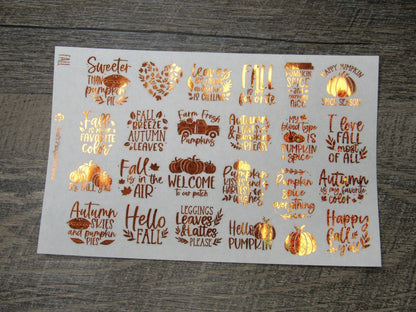 Sweeter
THAN
pumpkin
PIE
leaves
FALL
favorite
PUMPKIN
SPICE
HAPPY PUMPKIN
SPICE SEASON
Fall
IS MY
FAVORITE
Color
FALL
BREEZE
AUTUMN
LEAVES
Farm Fresh
Pumpkins
Autumn
leaves &
PUMPKINS
PLEASE
MY
Blood type
IS
PUMPKIN
Spice
I love
FALL
most
OF ALL
Fall
IS IN THE
AIR
WELCOME
to our patch
Pumpkin
KISSES
Pumpkin
spice
everything
Autumn
is my favorite
color
Autumn
SKIES
and pumpkin
PIES
Hello
FALL
LEGGINGS
Leaves
& Lattes
PLEASE
Hello
PUMPKIN
Happy
fall
y'all